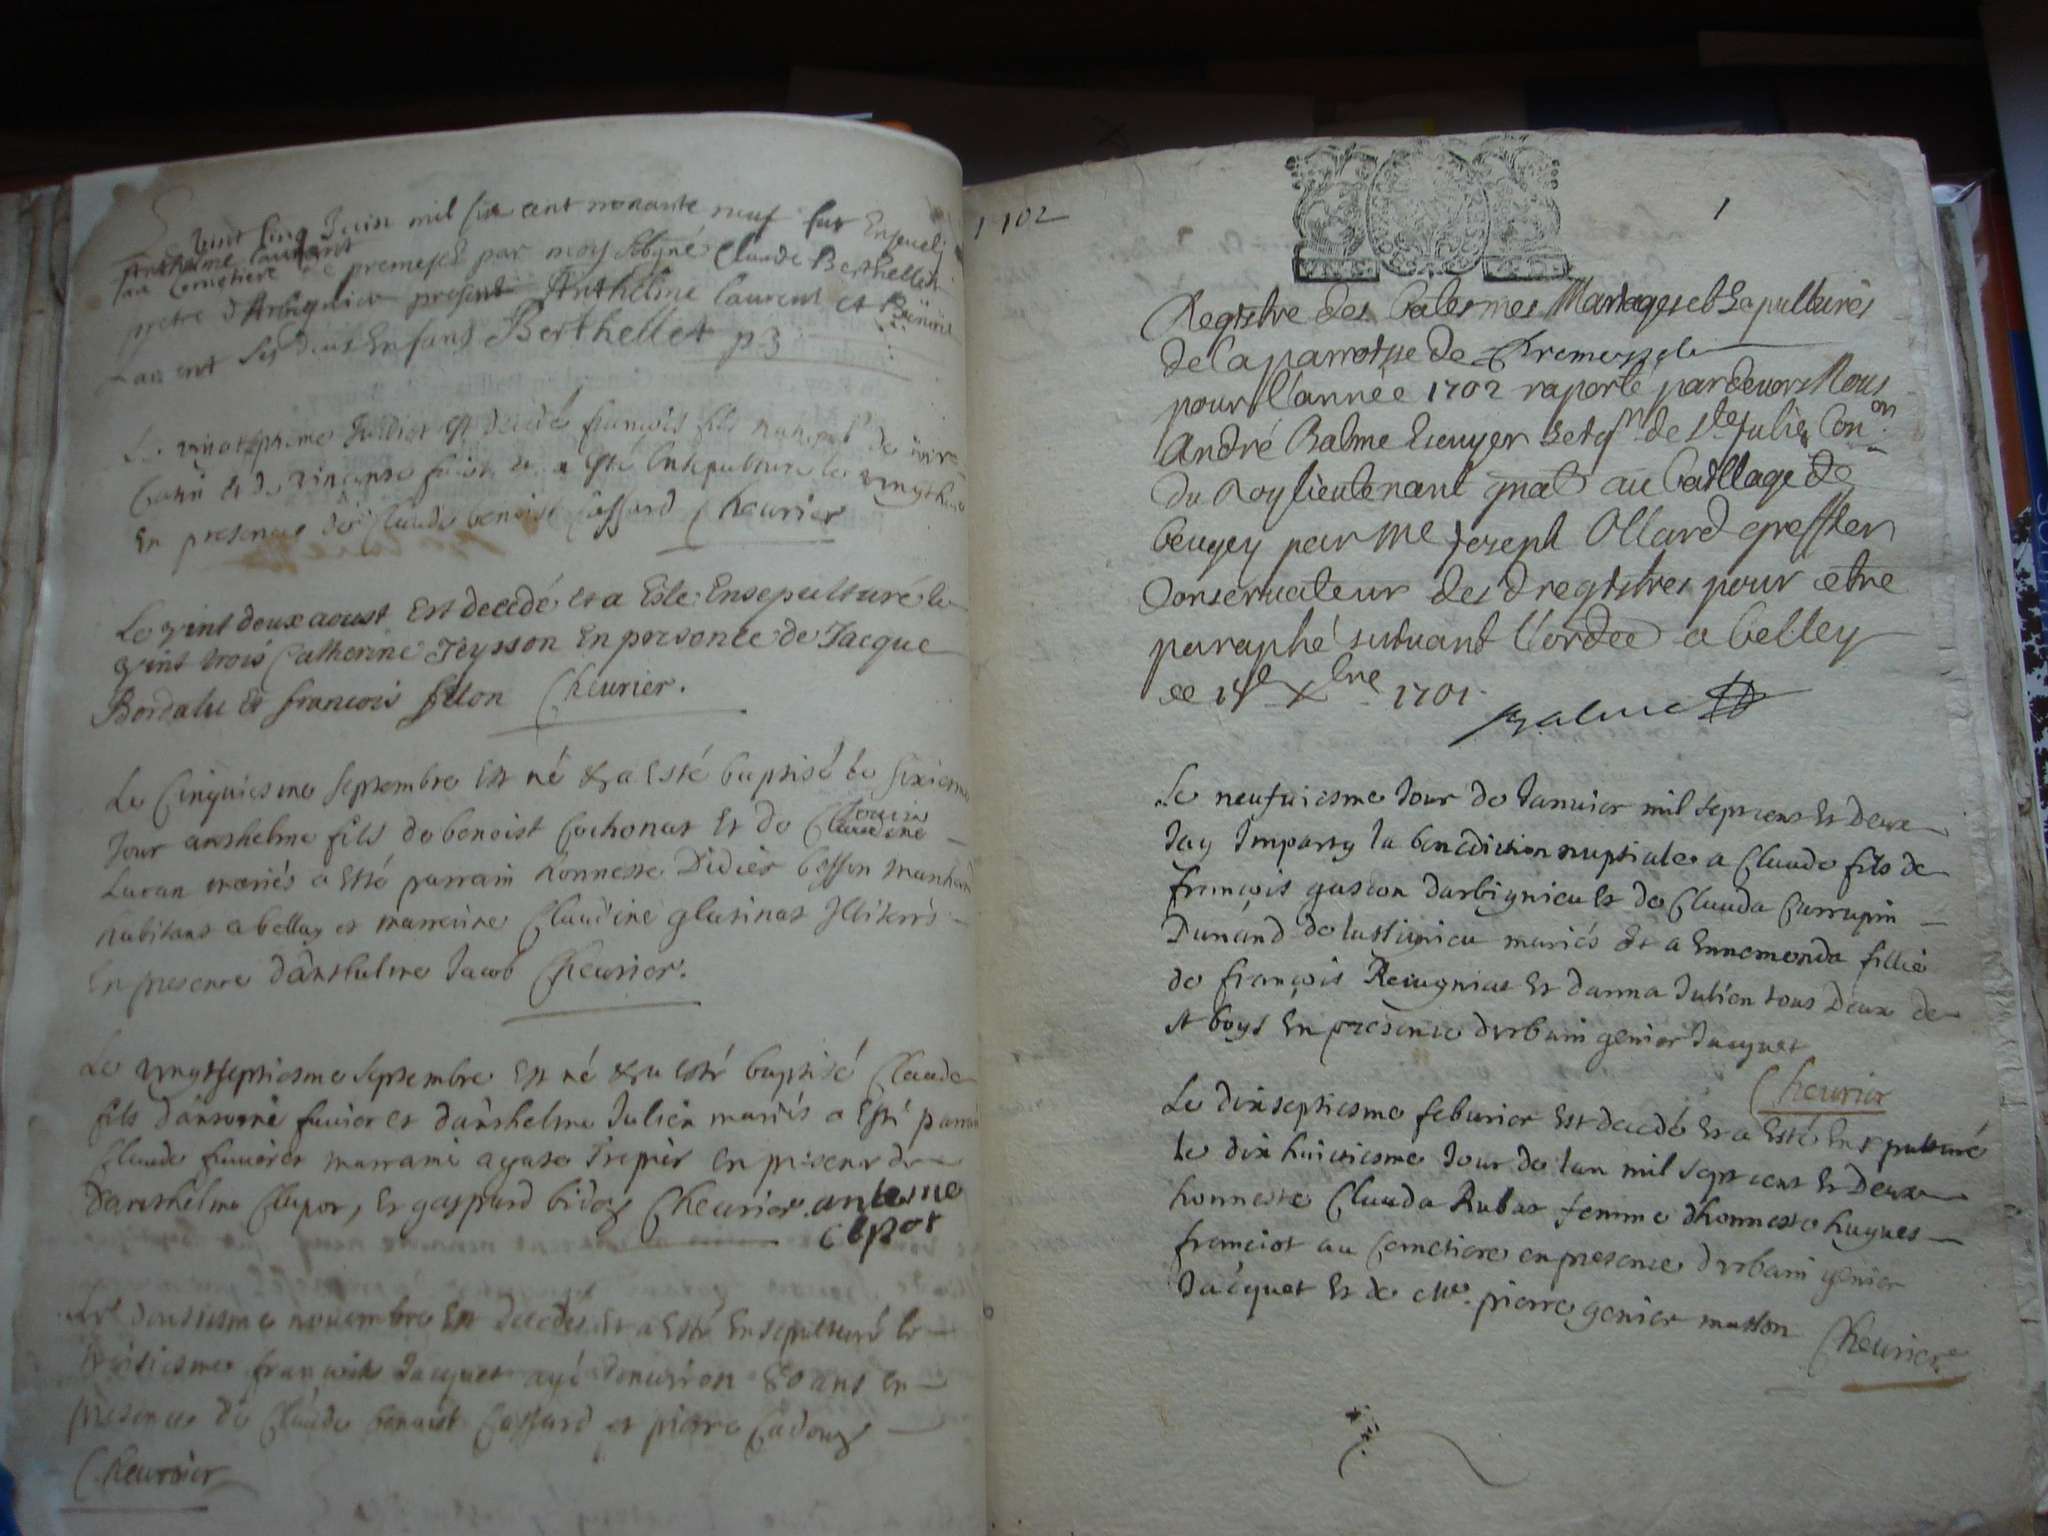 vint cinq Juin mil six cent nonante neuf fut Ensevely
Anthelme Laurent
au Cemetiere de premesel par moy sobsigné Claude Berthellet
pretre d'Arbignieu present Anthelme Laurent et
Laurent ses deux Enfans Berthellet p
Le vingtseptieme Juilliet est decedé françois fils
En presence de Claude benoist Cassard Cheurier
Le vint deux aoust Est decedé et a Esté Ensepulturé le
vint trois Catherine Teysson En presence de Jacque
Bordalu et françois fillon Cheurier.
Le Cinquiesme septembre est né & a esté baptisé le sixiesme
Jour anthelme fils de benoist Cochonat et de Claudine
Luran mariés a esté parrain honneste Didier besson marchand
habitant a belley et marreine Claudine glasinat Illiterés
En presence d'anthelme Jacob Cheurier.
Le vingtseptiesme septembre est né & a esté baptisé Claude
fils d'antoine fauier et d'anthelme Julien mariés a esté parrain
Claude fauier et marraine agase Trepier en presence
D'anthelme Clapot, et gaspard bidoz Cheurier. antesme
clapot
Le Douziesme nouembre est decedé et a esté Ensepulturé le
treiziesme françois Jacquet agé d'enuiron 80 ans en
presence de Claude benoist Cassard et pierre Cadouz
Cheurier
1702
1
Registre des batesmes Mariages et Sepultures
de la parroisse de Premeyzel
pour l'année 1702 raporté pardeuors Nous
André Balme Ecuyer Seigr de Ste Julie Conon
du Roy lieutenant gnal au bailliage de
beugey par Me Joseph Ollard greffier
Conseruateur des d registres pour etre
paraphé suiuant l'ordce a belley
ce 15e Xbre 1701
Balme
Le neufuiesme Jour de Januier mil sept cent et Deux
Jay Imparty la benediction nuptiale a Claude fils de
françois gascon darbignieu et de Clauda Carrupin
Dunand de lassignieu mariés et a Ennemonda fillie
de françois Reuugniat et danna Julien tous Deux de
st boys En presence durbain genier Jacquet
Cheurier
Le dixseptiesme feburier est decedé et a esté Ensepulturé
le dix huictiesme Jour de lan mil sept cent et Deux
honneste Clauda Rubat femme d'honneste hugues
francict au Cemetiere en presence durbain genier
Jacquet et de Me pierre genier masson Cheurier